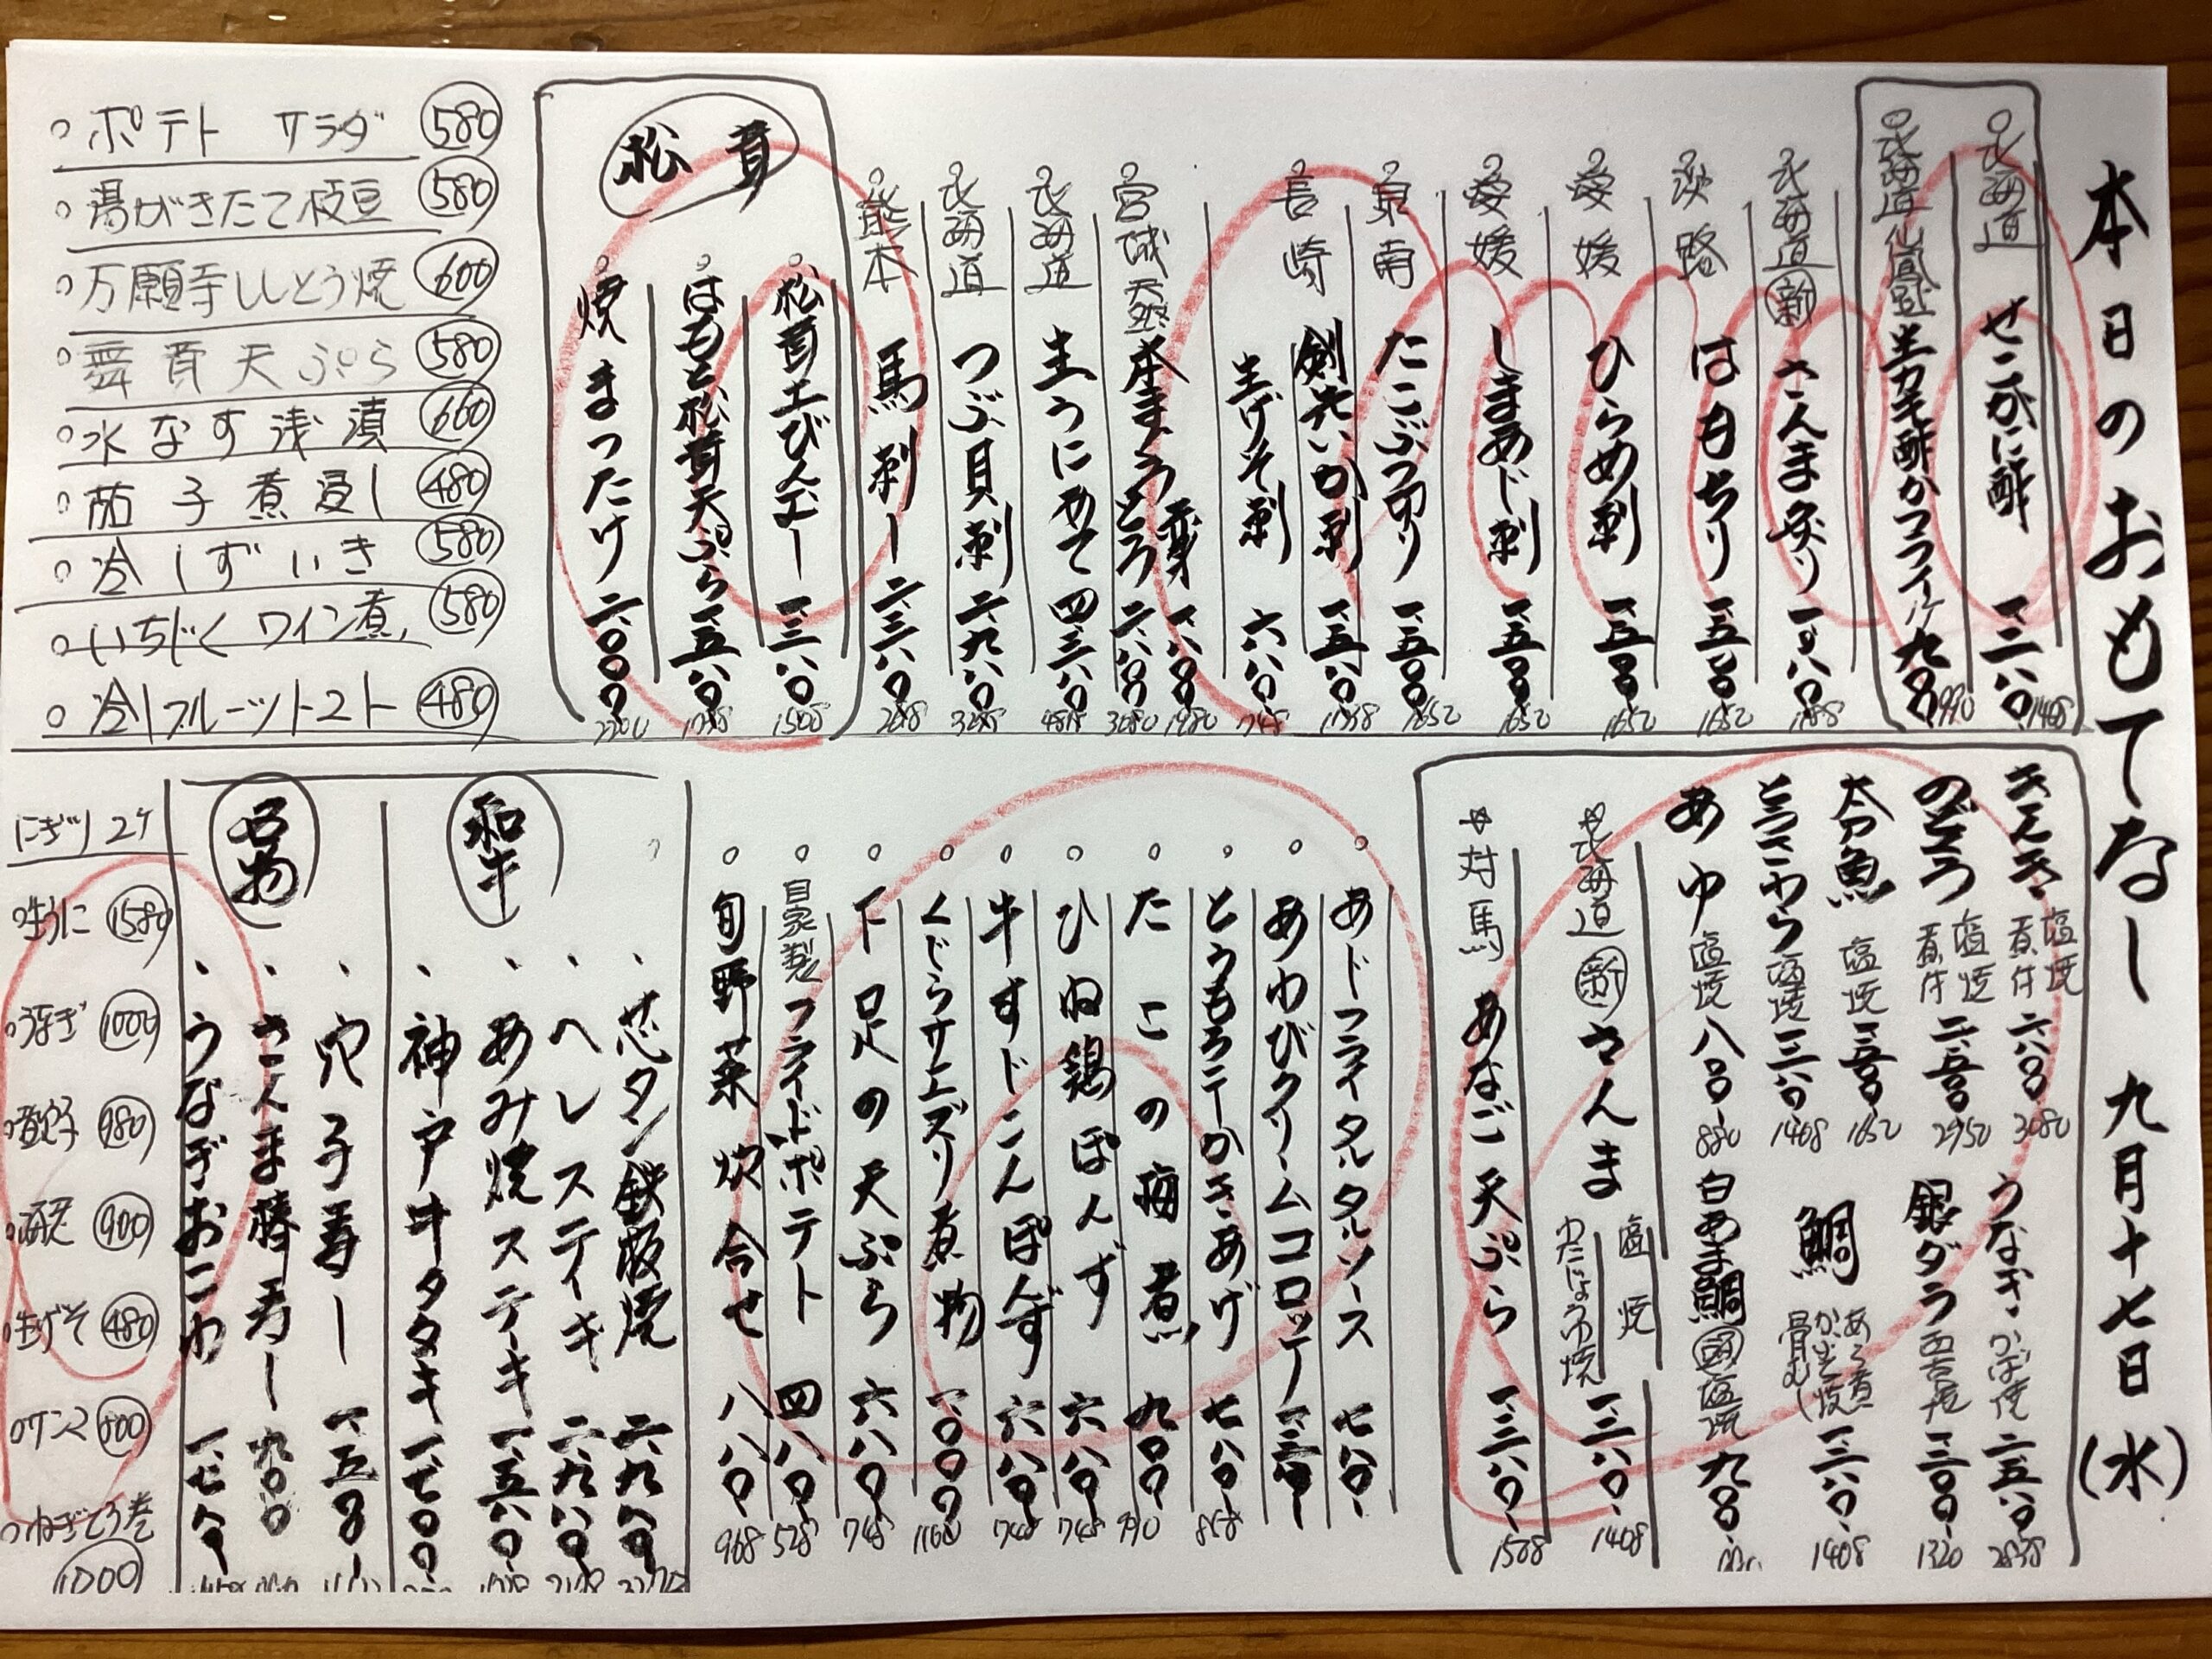 本日のおもてなし 九月十七日(水)
北海道 せこがに酢 一二八〇 1408
北海道仙鳳趾 生カキ酢かフライ 九〇〇 990
北海道 新 さんま炙り 一〇八〇 1188
淡路 はもちり 一五〇〇 1652
愛媛 ひらめ刺 一五〇〇 1652
愛媛 しまあじ刺 一五〇〇 1652
泉南 たこぶつ切り 一五〇〇 1652
長崎 剣先いか刺
生げそ刺 六八〇 748
宮城 天然 本まぐろ 赤身 一八〇〇 1980
とろ 二八〇〇 3080
北海道 生うにあて 四三八〇 4818
北海道 つぶ貝刺 二九八〇 3278
熊本 馬刺し
松茸
松茸土びんむし 一三八〇
はもと松茸天ぷら 一五八〇 1738
焼まつたけ 二〇〇〇 2200
ポテト サラダ 580
湯がきたて枝豆 580
万願寺ししとう焼 600
舞茸天ぷら 580
水なす浅漬 660
茄子煮浸し 480
冷しずいき 580
いちじくワイン煮 580
冷しフルーツトマト 480
きんき 塩焼 煮付 二八〇〇 3080
のどぐろ 塩焼 煮付
太刀魚 塩焼 一五〇〇 1650
とろさわら 塩焼 一二八〇 1408
あゆ 塩焼 八〇〇 880
うなぎ かば焼 二五八〇 2838
銀ダラ 西京焼 一二〇〇 1320
鯛 あら煮 かぶと焼 骨むし 一二八〇 1408
白あま鯛 塩焼 九〇〇
北海道 新 さんま 塩焼 わたじょうゆ焼 一二八〇 1408
対馬 あなご天ぷら 一三八〇
あじフライタルタルソース 七八〇
あわびクリームコロッケ
とうもろこしかきあげ 七八〇 858
たこの梅煮 九〇〇 990
ひね鶏ぽんず 六八〇 748
牛すじこんぽんず 六八〇 748
くじらサエズリ煮物 一〇〇〇 1100
下足の天ぷら 六八〇 748
自家製 フライドポテト 四八〇 528
旬野菜炊合せ 八八〇 968
和牛
芯タン鉄板焼 二九八〇
ヘレステーキ 二九八〇
あみ焼ステーキ 一五八〇
神戸牛タタキ 一七〇〇
名物
穴子寿し 一五〇〇
さんま棒寿し 九〇〇
うなぎおこわ
にぎり2ケ
生うに 1580
うなぎ 1000
煮穴子 980
生げそ 480
サンマ
ねぎとろ巻 1000